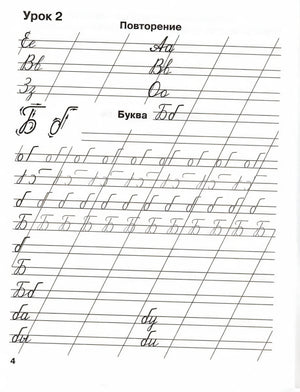 Урок 2
Повторение
Ее Аа
Вв Вв
Зз Оо
Буква Бб
Б б
б б б б б б б б б б
Б Б Б Б Б Б Б Б Б Б
б
Б
Бб
ба бу
бы би
4